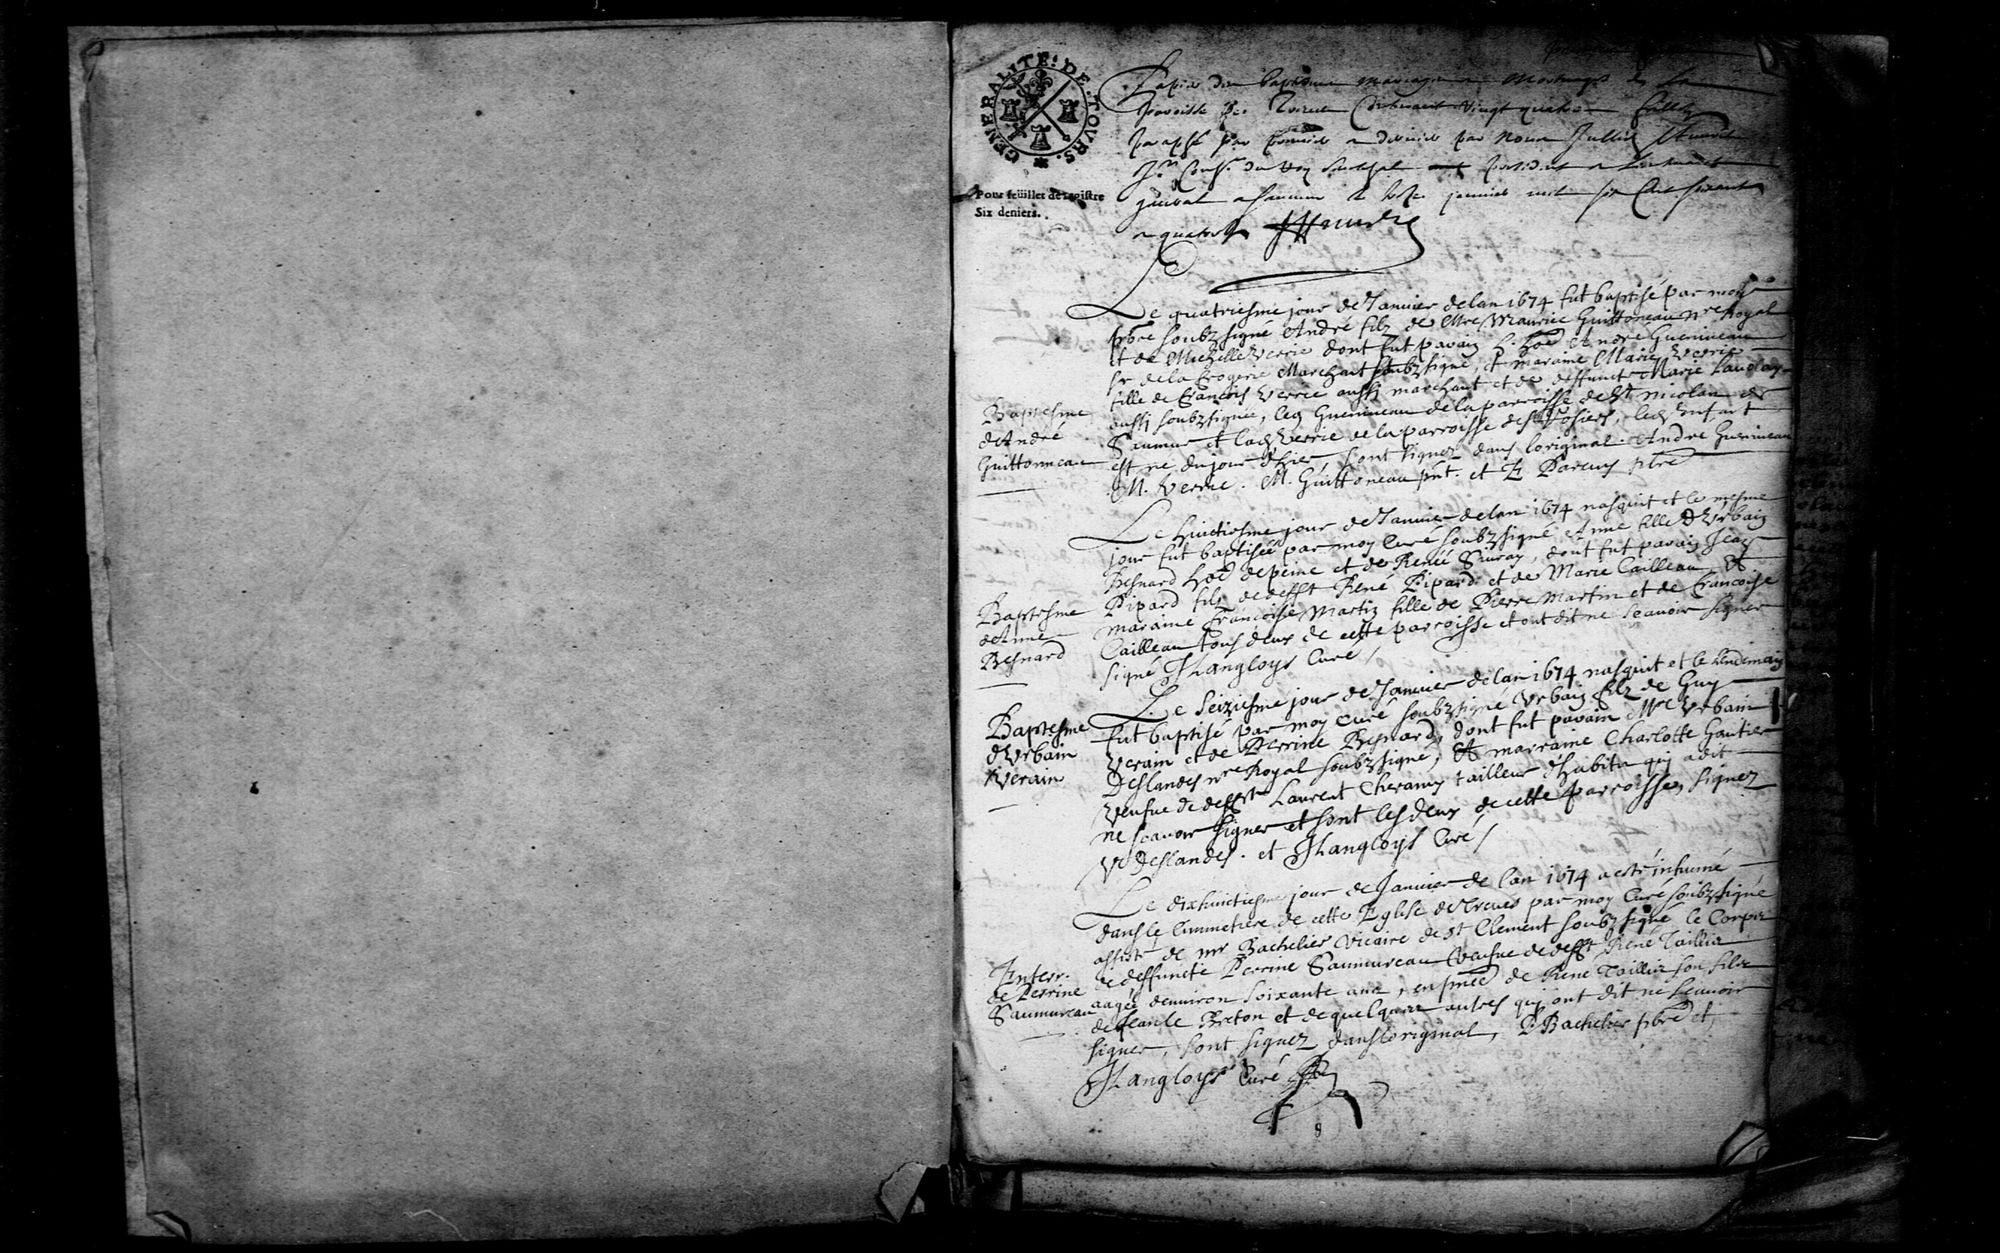 GENERALITE. DE. TOVRS.
Pour feüillet de registre
Six deniers.
Papier des Baptesmes mariages et mortuages de la
parroisse de Treves Contenant vingt quatre feilletz
paraphé par premier et dernier par Nous
Con.er du Roy president et Lieutenant
general a Saumur le janvier mil six Cent soixante
et quatorze
Le quatriesme jour de Janvier de lan 1674 fut baptisé par moy
pbre soubzsigné André filz de Mre Maurice Guittoneau nre Royal
et de Michelle Verrie dont fut parain h. hoe André Guerineau
sr de la Marchant soubzsigné, et maraine Marie Verrie
fille de François Verrie aussy marchant et de deffunct Marie
aussy soubzsignée, led Guerineau de la parroisse de St Nicolas de
Saumur et lad Verrie de la parroisse des Rosiers, led Enfant
est né du jour d'hier, sont signez dans loriginal. André Guerineau
M. Verrie. M. Guittoneau pnt. et pbre
Baptesme
d'André
Guittonneau
Le huictiesme jour de Janvier de lan 1674 nasquit et le mesme
jour fut baptisée par moy Curé soubzsigné Anne fille d'Vrbain
Besnard hoe de peine et de Renée Sivray, dont fut parain Jean
Pipard filz de defft René Pipard et de Marie Cailleau, et
maraine Françoise Martin fille de Pierre Martin et de Francoise
Cailleau tous deux de cette parroisse et ont dit ne scavoir signer
signé JLangloys Curé /
Baptesme
d'Anne
Besnard
Le Seiziesme jour de Janvier de lan 1674 nasquit et le lendemain
fut baptisé par moy Curé soubzsigné Vrbain filz de Guy
Verain et de Perrine Besnard, dont fut parain Mre Vrbain
Deslandes nre Royal soubzsigné, et marraine Charlotte Gautier
veufue de defft Laurent tailleur d'habitz qui a dit
ne scavoir signer et sont les deux de cette parroisse, signez
V Deslandes. et JLangloys Curé /
Baptesme
d'Vrbain
Verain
Le dixhuictiesme jour de Janvier de lan 1674 a esté inhumé
dans le Cimmetiere de cette Eglise de Treves par moy Curé soubzsigné
assisté de mr Bachelier Vicaire de St Clement soubzsigné le Corps
de deffuncte Perrine Saumureau veufue de defft René Taillié
aagée d'environ soixante ans, en pnce de René Taillié son filz
de Jean le Breton et de quelques autres qui ont dit ne scavoir
signer, sont signez dans loriginal, P. Bachelier pbre et
JLangloys Curé
Enterr.
de Perrine
Saumureau